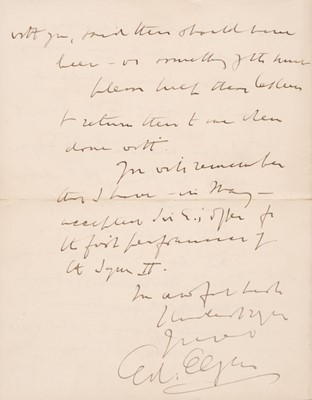 with you, said there should have
been – or something of the sort
please keep these letters
& return them to me when
done with.
You will remember
that I have – in May –
accepted Sir E.'s offer for
the first performance of
the Sym II.
In awful haste
Kindest rgds
Yours
Ed. Elgar